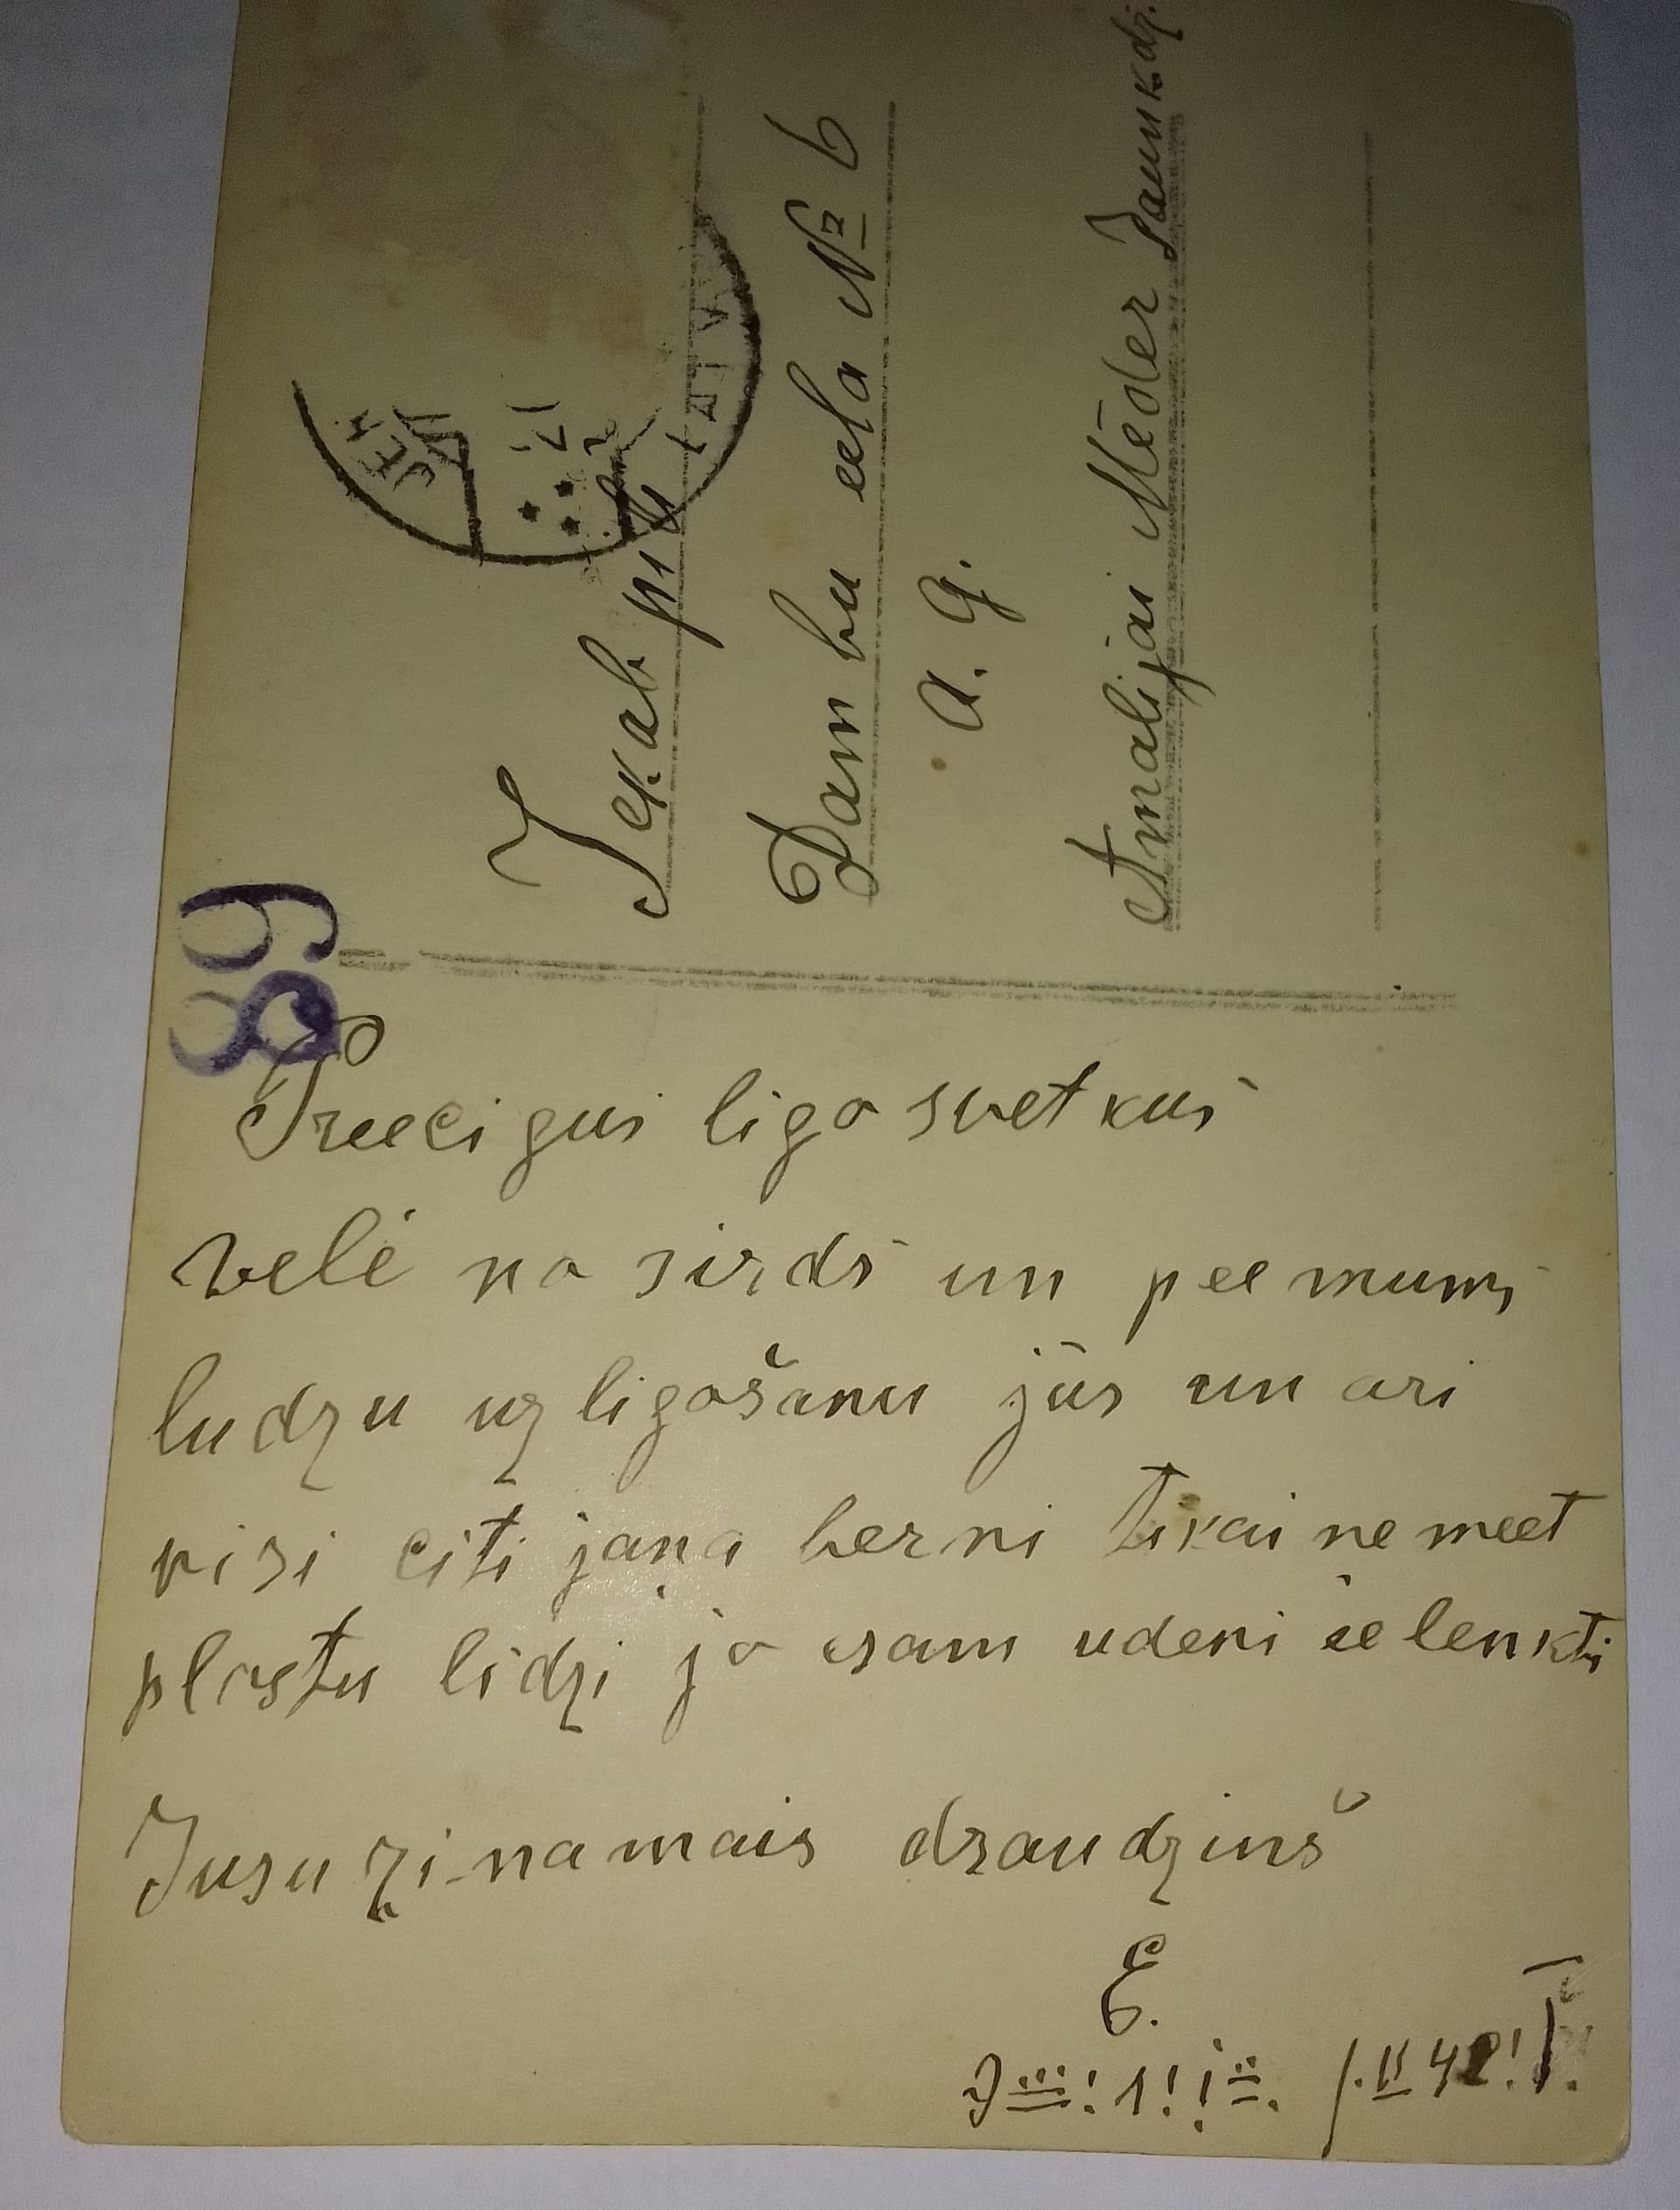 Jekabpilī
Dambu eela № 6
A. G.
Amalijai Mēder Jaunkdz.
68
JEK
LATVI
Preecigus ligo svetkus
velē no sirds un pee mums
ludzu uz ligošanu jūs un ari
visi citi jaņa berni tikai ne meet
plostu lidzi jo esam udeni ielenkti
Jusu zinamais draudziņš
E.